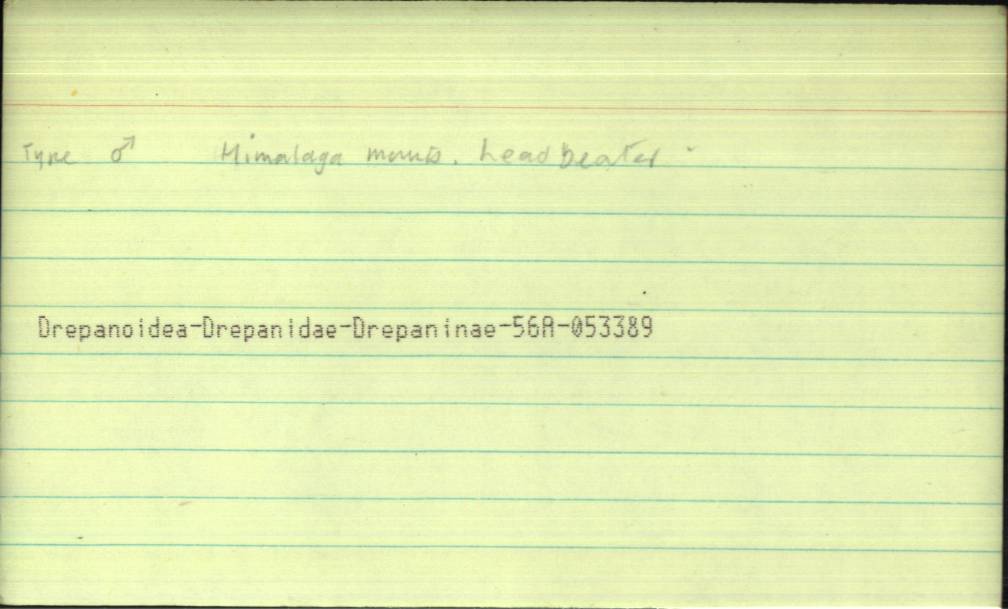 Type ♂ Himalaga mounts. Leadbeater
Drepanoidea-Drepanidae-Drepaninae-56A-053389